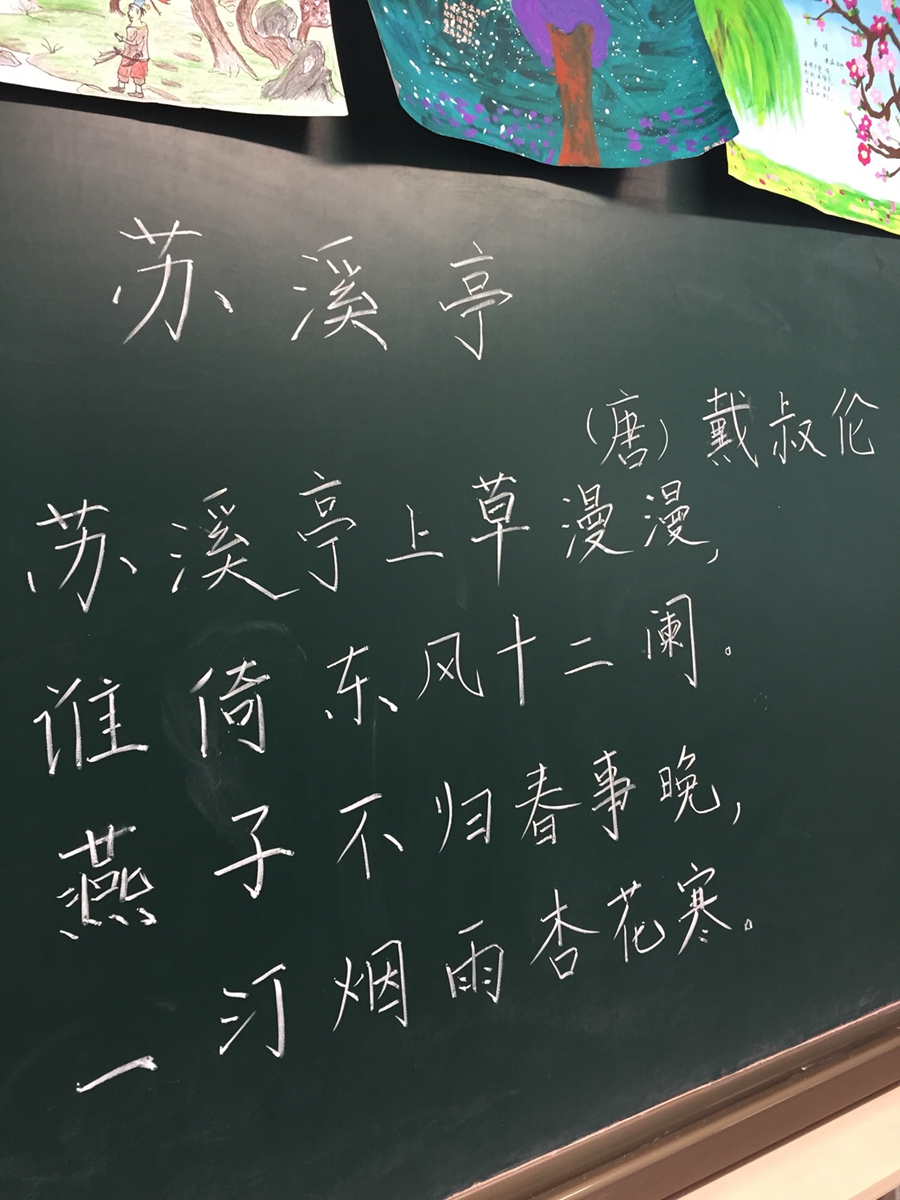 苏溪亭
(唐) 戴叔伦
苏溪亭上草漫漫,
谁倚东风十二阑。
燕子不归春事晚,
一汀烟雨杏花寒。